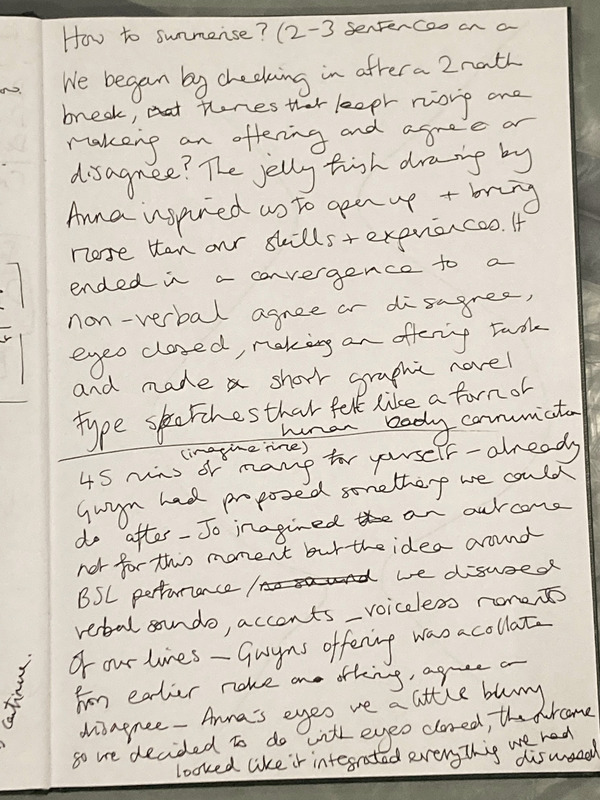 How to summerise? (2-3 sentences on a
We began by checking in after a 2 month
break, that themes that kept rising are
making an offering and agree or
disagree? The jelly fish drawing by
Anna inspired us to open up + bring
more than our skills + experiences. It
ended in a convergence to a
non-verbal agree or disagree,
eyes closed, making an offering task
and made a short graphic novel
type sketches that felt like a form of
human body communication
(imagine time)
45 mins of many for yourself - already
Gwyn had proposed something we could
do after - Jo imagined the an outcome
not for this moment but the idea around
BSL performance / no sound we disussed
verbal sounds, accents - voiceless moments
of our lines - Gwyns offering was a collate
from earlier make an offering, agree or
disagree - Anna's eyes we a little blurry
so we decided to do with eyes closed, the outcome
looked like it integrated everything we had
disussed
continue.